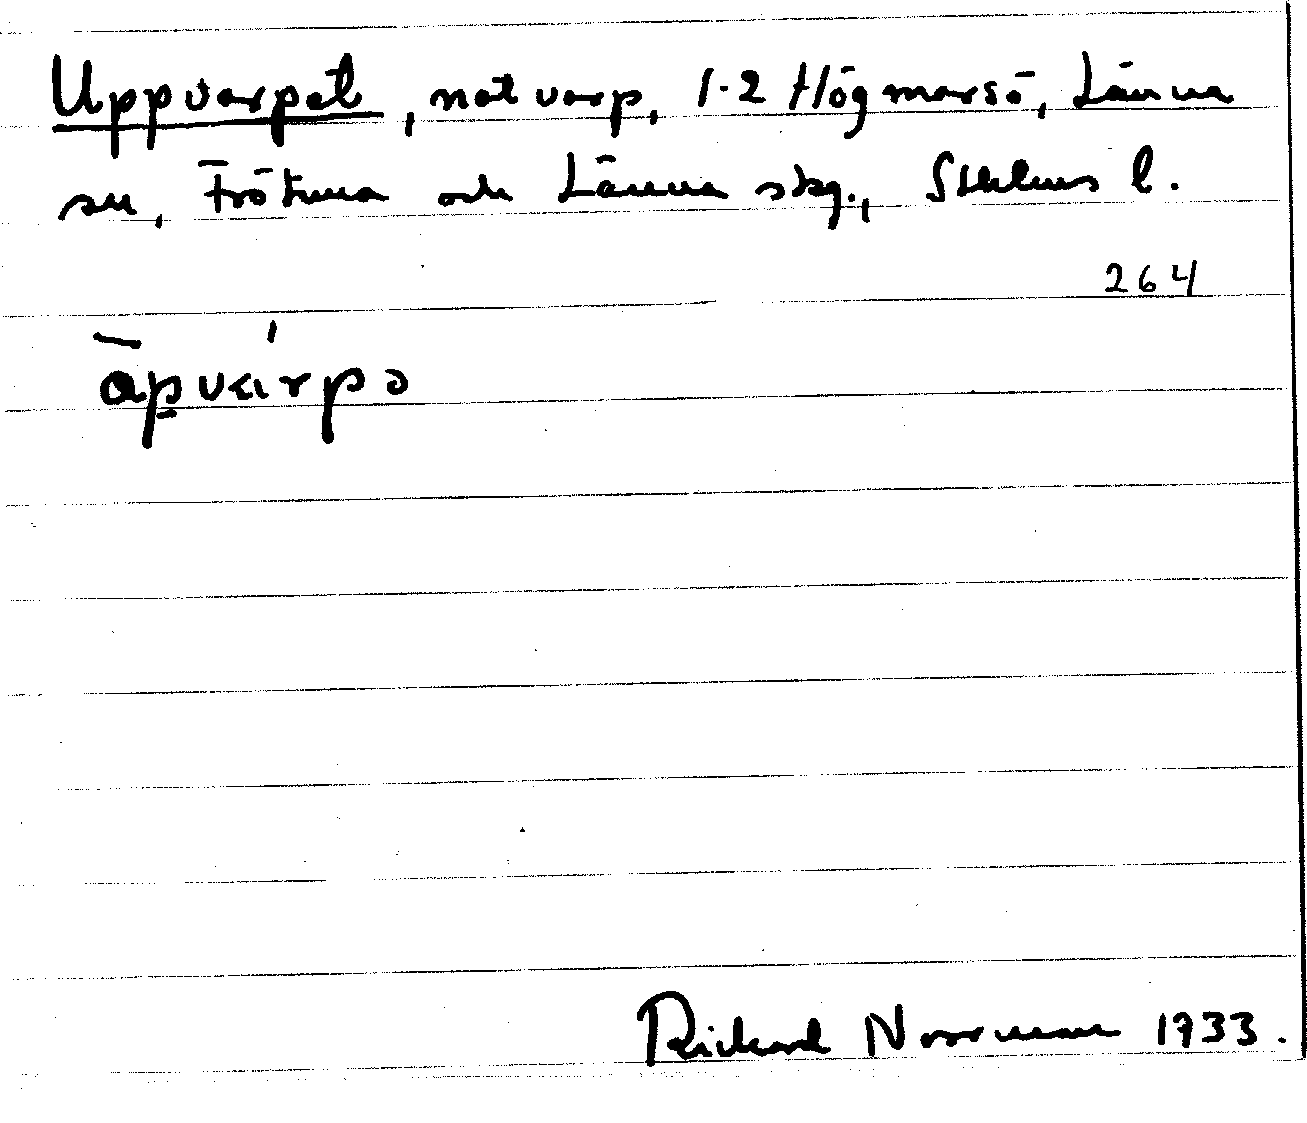 Uppvarpet, notvarp, 1-2 Högmarsö, Länna
sn, Frötuna och Länna skg., Sthlms l.
264
Rickard Norrman 1933.